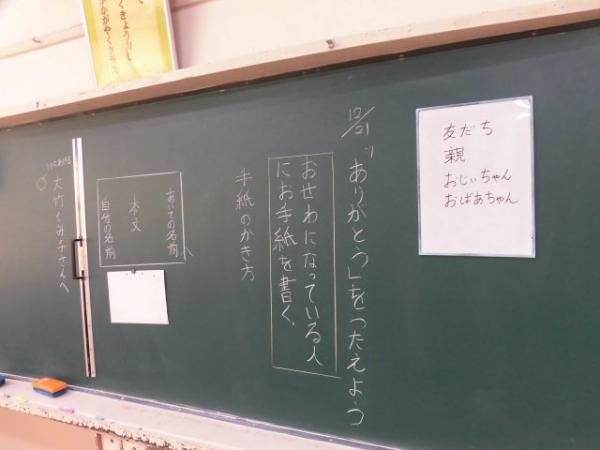 12/21
「ありがとう」をつたえよう
おせわになっている人
にお手紙を書く。
手紙のかき方
あいての名前
本文
自分の名前
大竹くみ子さんへ
友だち
親
おじぃちゃん
おばあちゃん